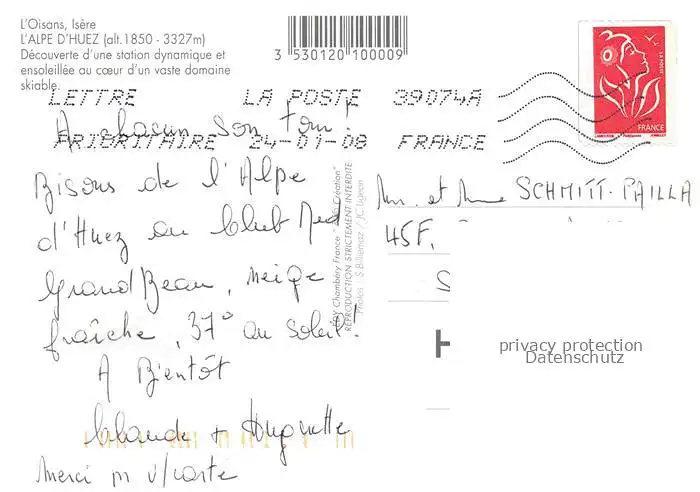 L'Oisans, Isère
L'ALPE D'HUEZ (alt.1850 - 3327m)
Découverte d'une station dynamique et
ensoleillée au cœur d'un vaste domaine
skiable.
3 530120 100009
LETTRE LA POSTE 39074A
PRIORITAIRE 24-01-08 FRANCE
LA POSTE
FRANCE
A chacun son tour !
Bisous de l'Alpe
d'Huez au Club Med
Grand Beau, neige
fraîche, 37° au soleil !
A Bientôt
Claude + Huguette
Merci pr v/carte
EDY Chambéry France -
REPRODUCTION STRICTEMENT INTERDITE
Photos : S Billiemaz / JC Ligeon
Mr. et Mme SCHMITT-PAILLA
45F,
privacy protection
Datenschutz